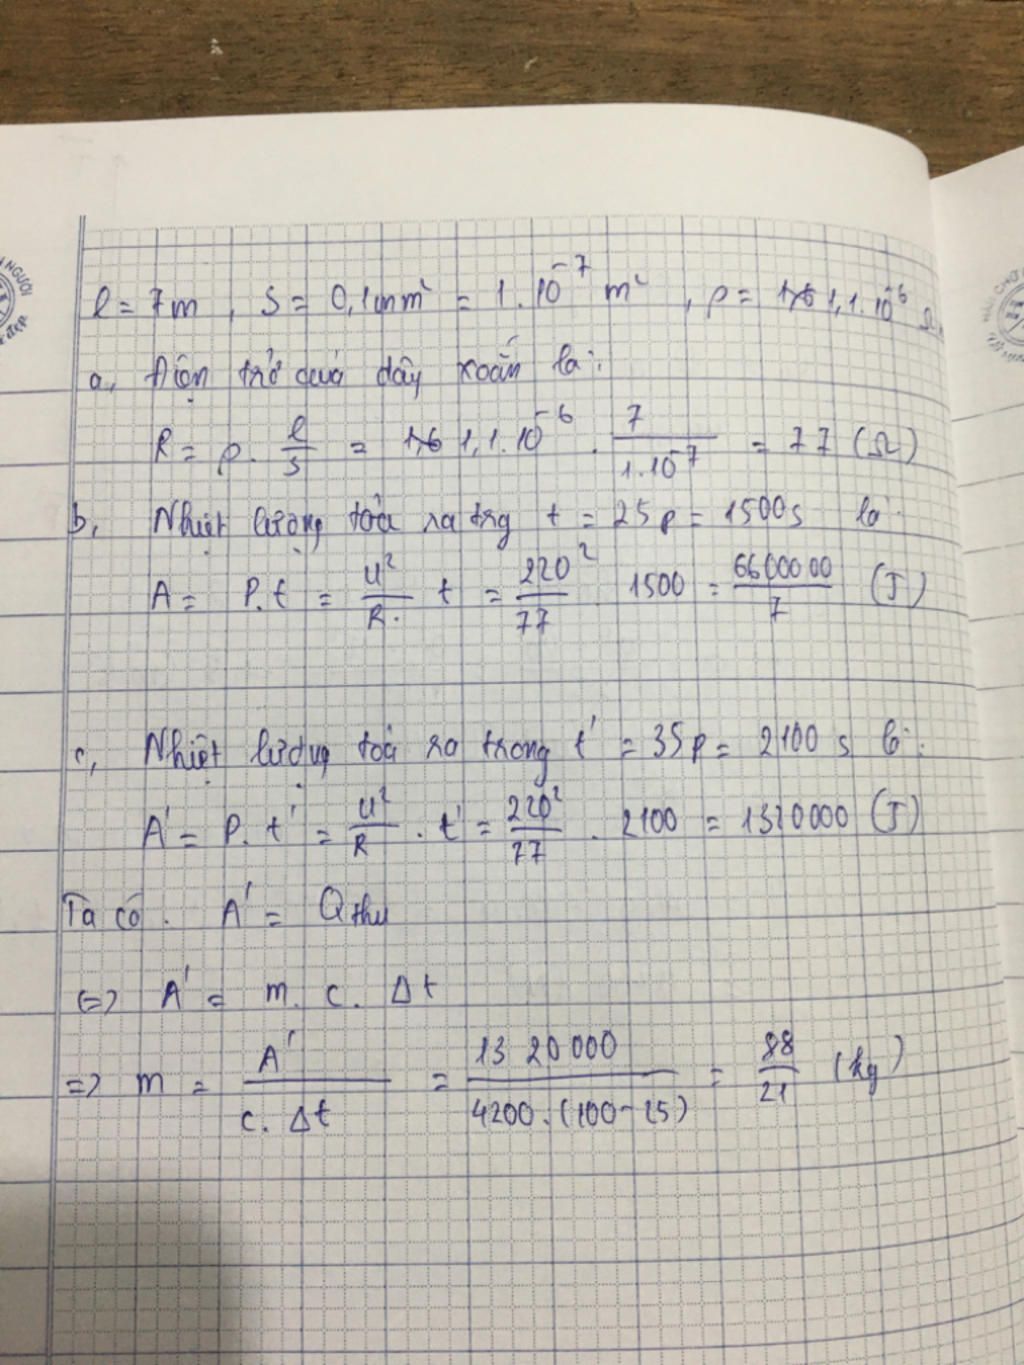 NGƯỜI
đẹp
l = 7m , S = 0,1mm² = 1.10⁻⁷ m² , ρ = 1,1.10⁻⁶ Ω
a, Điện trở của dây xoắn là:
R = ρ. l/S = 1,1.10⁻⁶ . 7/1.10⁻⁷ = 77 (Ω)
b, Nhiệt lượng toả ra trg t = 25p = 1500s là
A = P.t = U²/R. t = 220²/77 . 1500 = 6600000/7 (J)
c, Nhiệt lượng toả ra trong t' = 35p = 2100 s là:
A' = P. t' = U²/R . t' = 220²/77 . 2100 = 1320000 (J)
Ta có . A' = Qthu
(=) A' = m. c. Δt
=) m = A'/c. Δt = 1320000/4200.(100-25) = 88/21 (kg)